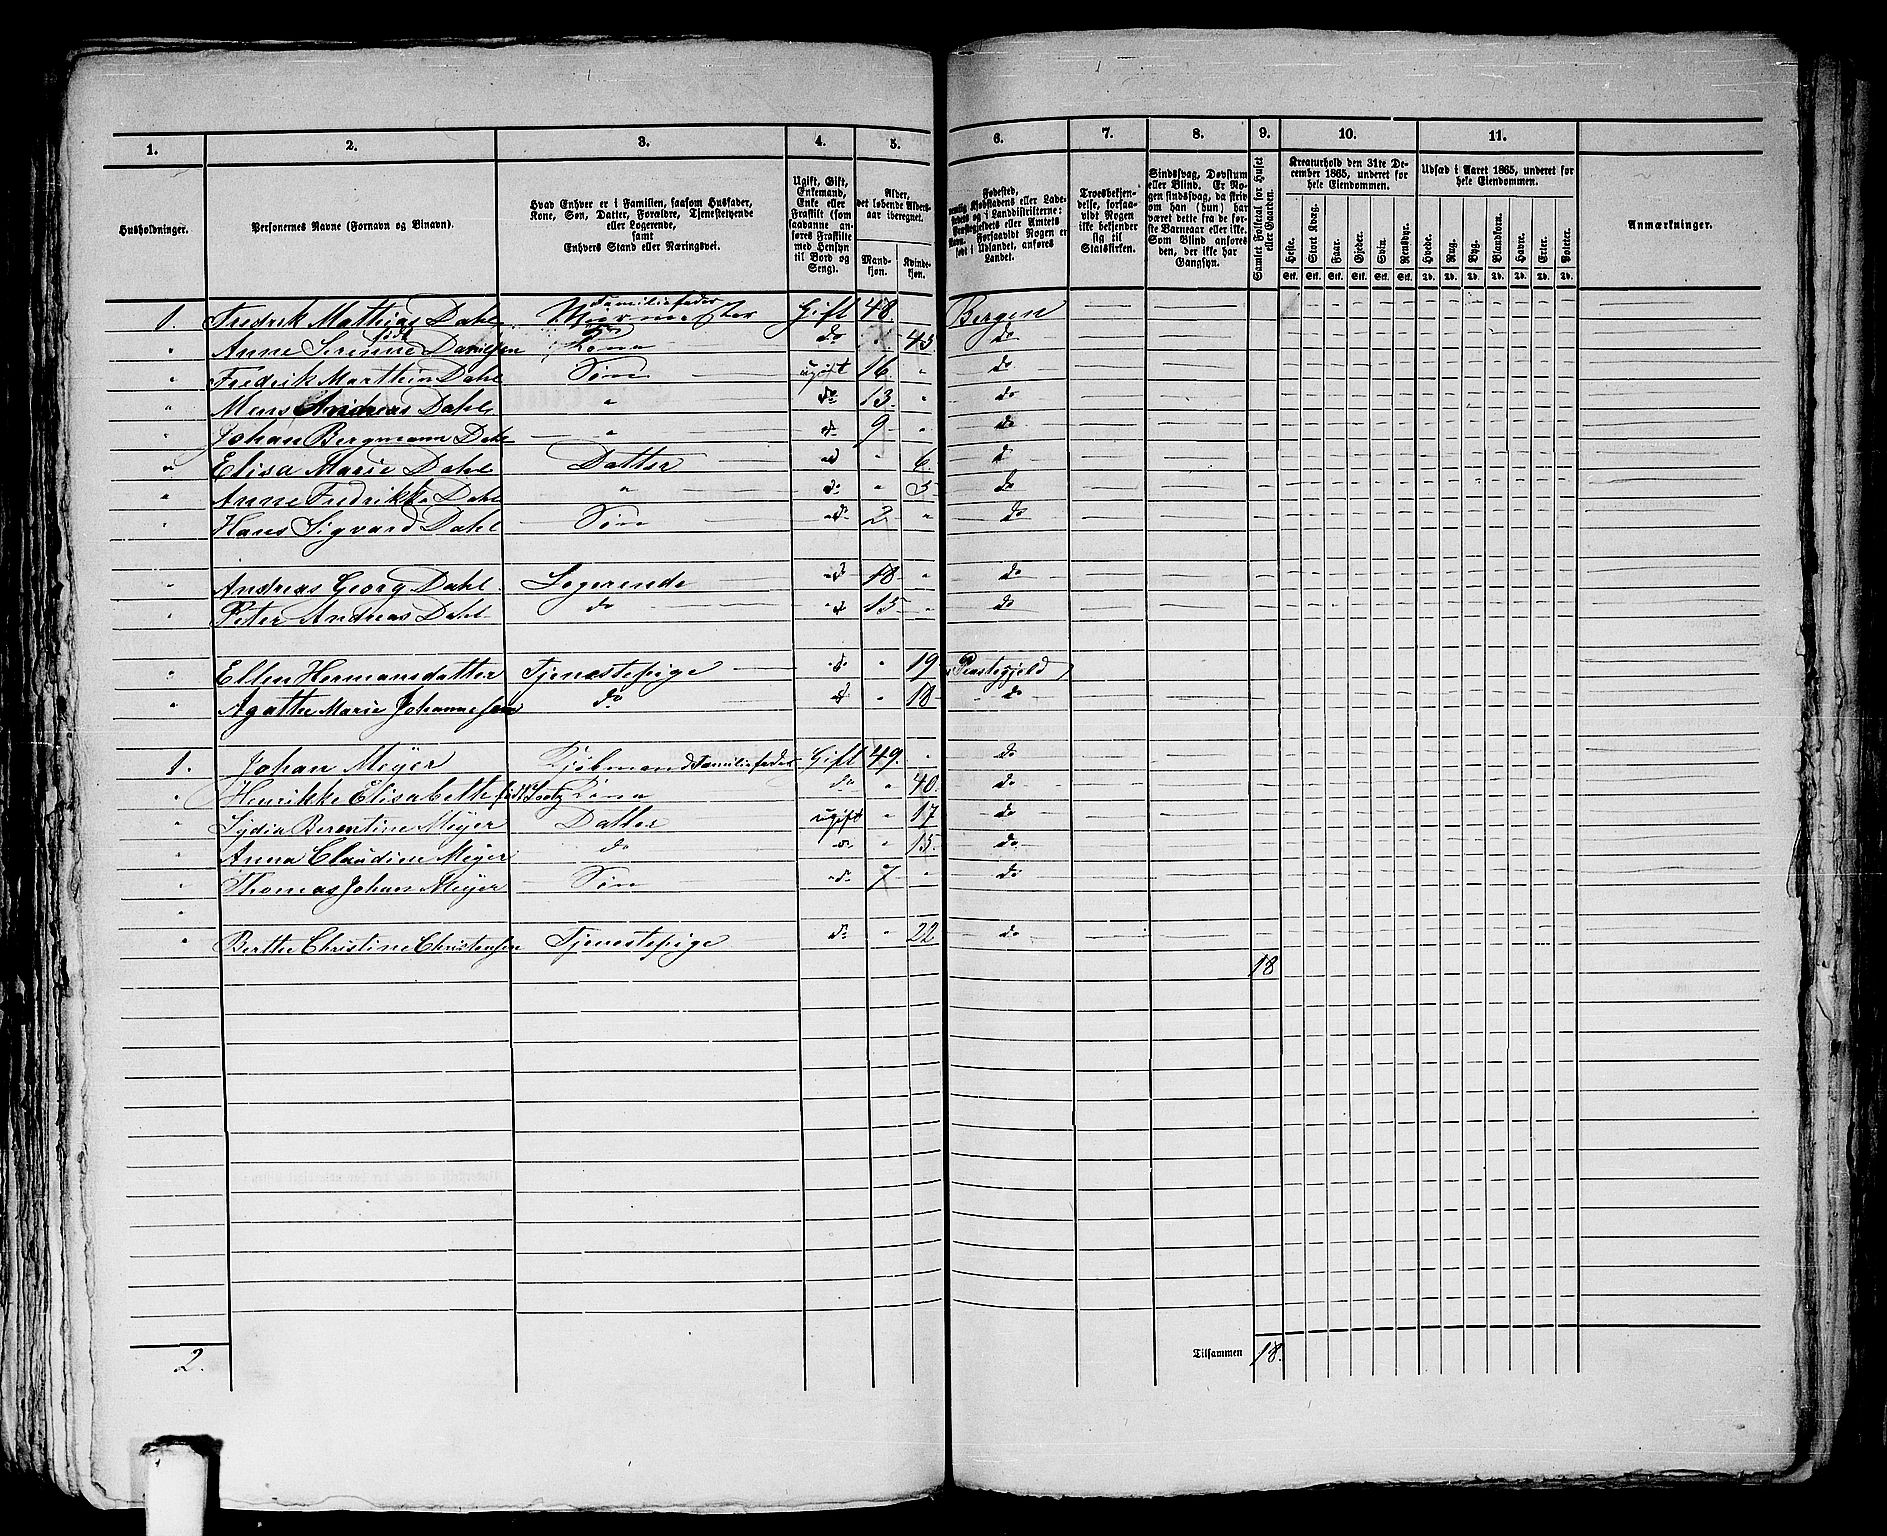 1. 2. 3. 4. 5. 6. 7. 8. 9. 10. 11.
Husholdninger.
Personernes Navne (Fornavn og Binavn).
Hvad Enhver er i Familien, saasom Husfader,
Kone, Søn, Datter, Forældre, Tjenestetyende
eller Logerende,
samt
Enhvers Stand eller Næringsvei.
Ugift, Gift,
Enkemand,
Enke eller
Fraskilt (som
saadanne anføres Fraskilte
med Hensyn
til Bord og
Seng).
Alder,
det løbende Alders-
aar iberegnet.
Mand-
kjøn.
Kvinde-
kjøn.
Fødested,
nemlig Kjøbstadens eller Lade-
stedets og i Landdistrikterne:
Præstegjeldets eller Amtets
Navn. Forsaavidt Nogen er
født i Udlandet, anføres
Landet.
Troesbekjen-
delse, forsaa-
vidt Nogen
ikke bekjender
sig til
Statskirken.
Sindssvag, Døvstum
eller Blind. Er No-
gen sindssvag, da skrives
om han (hun) har
været dette fra de før-
ste Barneaar eller ikke.
Som Blind anføres
den, der ikke har
Gangsyn.
Samlet Folketal for Huset
eller Gaarden.
Kreaturhold den 31te De-
cember 1865, underet for
hele Eiendommen.
Heste. Stort Kvæg. Faar. Gjeder. Svin. Rensdyr.
Stk. Stk. Stk. Stk. Stk. Stk.
Udsæd i Aaret 1865, underet for
hele Eiendommen.
Hvede. Rug. Byg. Blandkorn. Havre. Erter. Poteter.
Td. Td. Td. Td. Td. Td. Td.
Anmærkninger.
1. Fredrik Mathias Dahl Familiefader Muurmester Gift 48 Bergen
" Anne Serine født Danielsen Kone do " 45 do
" Fredrik Marthin Dahl Søn ugift 16 " do
" Mens Andreas Dahl " do 13 " do
" Johan Bergmann Dahl " do 9 " do
" Elisa Marie Dahl Datter do " 6 do
" Anne Fredrikke Dahl " do " 3 do
" Hans Sigvard Dahl Søn do 2 " do
" Andreas Georg Dahl Logerende do 18 " do
" Peter Andreas Dahl do do 15 " do
" Ellen Hermansdatter Tjenestepige do " 19 Præstegjeld
" Agathe Marie Johannesen do do " 18 do
1. Johan Meyer Kjøbmand Familiefader Gift 49 " do
" Henrikke Elisabeth født Kone do " 40 do
" Lydia Berentine Meyer Datter ugift " 17 do
" Anna Claudine Meyer do do " 15 do
" Thomas Johan Meyer Søn do 7 " do
"
" Berthe Christine Christensen Tjenestepige do " 22 do
18
2. Tilsammen 18.